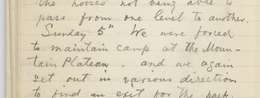 the horses not being able to
pass from one level to another.
Sunday 5th We were forced
to maintain camp at the Moun-
tain Plateau. and we again
set out in various direction
to find an exit for the pack